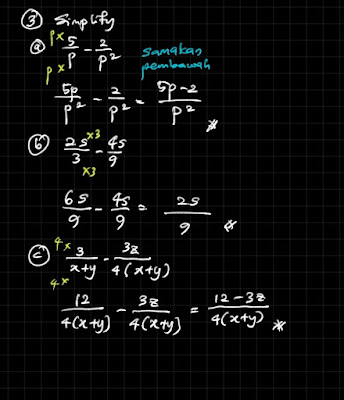 ③ Simplify
ⓐ p× 5/p - 2/p² samakan
p× pembawah
5p/p² - 2/p² = 5p-2/p²
ⓑ 2s/3 ×3 - 4s/9
×3
6s/9 - 4s/9 = 2s/9
ⓒ 4× 3/x+y - 3z/4(x+y)
4×
12/4(x+y) - 3z/4(x+y) = 12-3z/4(x+y)